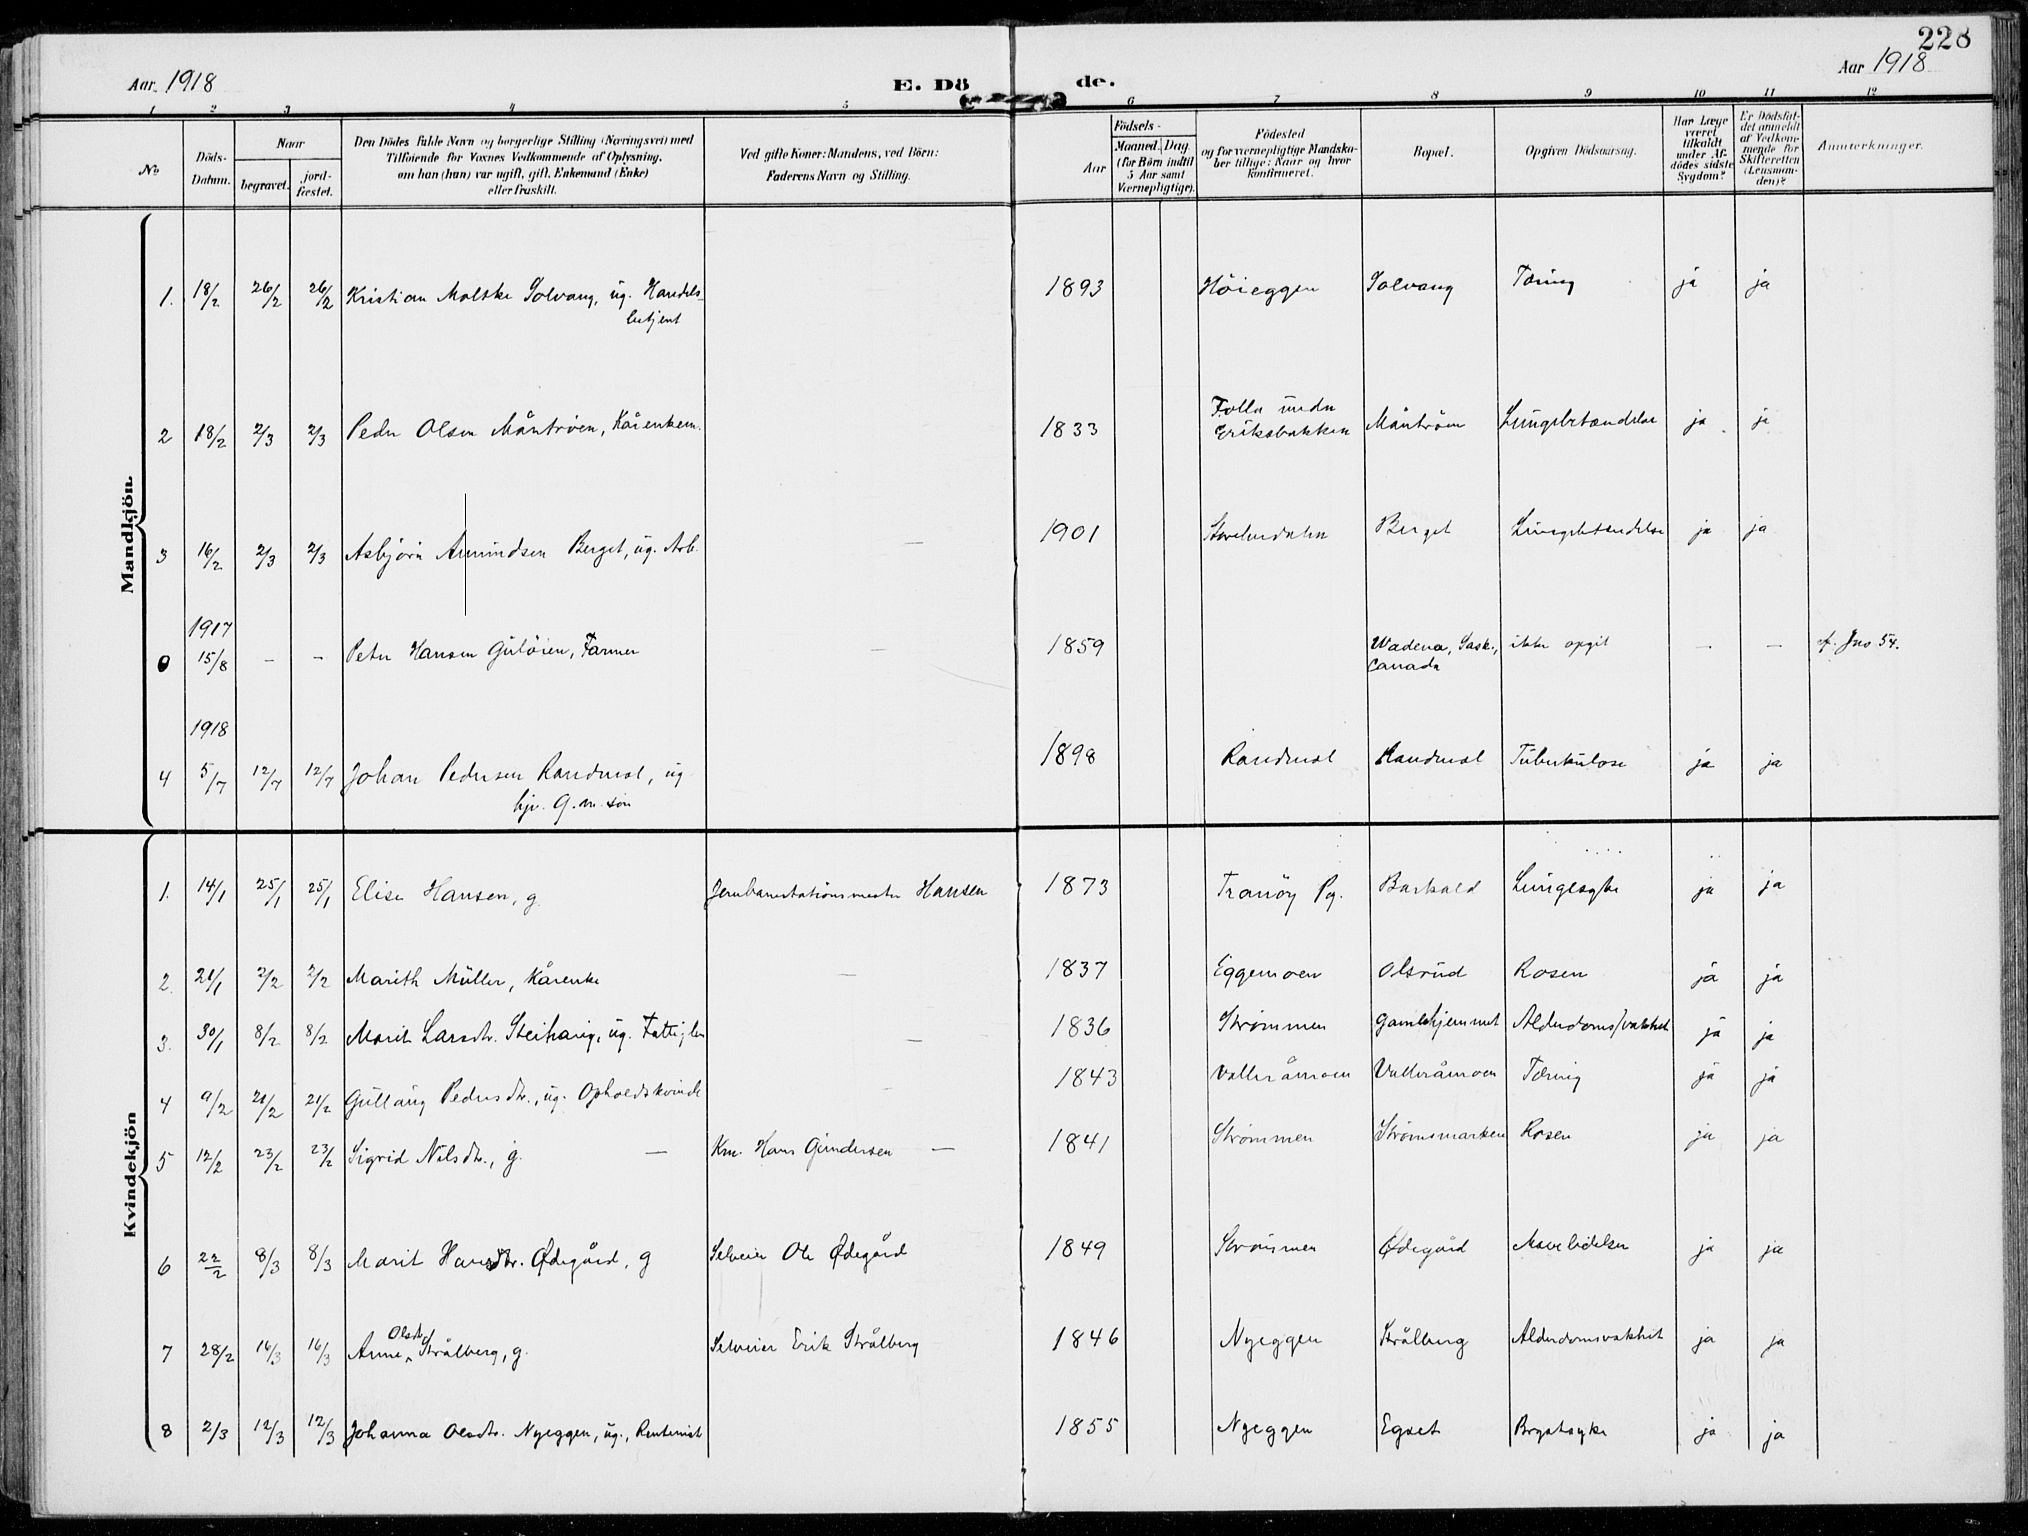 228
Aar 1918
E. Dö
de.
Aar 1918
1 2 3 4 5 6 7 8 9 10 11 12
No
Döds-Datum.
Naar
begravet.
jord-fæstet.
Den Dödes fulde Navn og borgerlige Stilling (Næringsvei) med
Tilföiende for Voxnes Vedkommende af Oplysning,
om han (hun) var ugift, gift, Enkemand (Enke)
eller fraskilt.
Ved gifte Koner: Mandens, ved Börn:
Faderens Navn og Stilling.
Födsels-
Aar
Maaned. Dag
(for Börn indtil
5 Aar samt
Værnepligtige).
Födested
og for værnepligtige Mandska-
ber tillige: Naar og hvor
konfirmeret.
Bopæl.
Opgiven Dödsaarsag.
Har Læge
været
tilkaldt
under Af-
dödes sidste
Sygdom?
Er Dödsfal-
det anmeldt
af Vedkom-
mende for
Skifteretten
(Lensman-
den)?
Anmerkninger.
Mandkjön.
1. 18/2 26/2 26/2 Kristian Moltke Solvang, ug. Handels- 1893 Höieggen Solvang Tæring ja ja
betjent
2 18/2 2/3 2/3 Peder Olsen Måntröen, Kårenkem. 1833 Folla under Måntröen Lungebetændelse ja ja
Eriksbakken
3 16/2 2/3 2/3 Asbjörn Amundsen Berget, ug. Arb. — 1901 Storelvedalen Berget Lungebetændelse ja ja
1917
0 15/8 - - Peter Hansen Gulöien, Farmer — 1859 Wadena, Sask., ikke opgit - - cf. Jno 54.
Canada
1918
4 5/7 12/7 12/7 Johan Pedersen Randmæl, ug 1898 Randmæl Randmæl Tuberkulose ja ja
hjv. G.m. sön
Kvindekjön
1. 14/1 25/1 25/1 Elise Hansen, g. Jernbanestationsmester Hansen 1873 Tranöy Pg. Barkald Lungesyke ja ja
2. 21/1 2/2 2/2 Marith Müller, Kårenke — 1837 Eggemoen Olsrud Rosen ja ja
3. 30/1 8/2 8/2 Marit Larsdtr. Steihaug, ug. Fattiglem — 1836 Strömmen Gamlehjemmet Alderdomssvakhet ja ja
4 9/2 21/2 21/2 Gullaug Pedersdtr., ug. Opholdskvinde — 1843 Valleråmoen Valleråmoen Tæring ja ja
5 12/2 23/2 23/2 Sigrid Nilsdtr., g. — Km. Hans Gundersen — 1841 Strömmen Strömsmarken Rosen ja ja
6 22/2 8/3 8/3 Marit Hansdtr. Ødegård, g Selveier Ole Ødegård 1849 Strömmen Ødegård Mavelidelse ja ja
7 28/2 16/3 16/3 Anne Olsdtr. Strålberg, g. Selveier Erik Strålberg 1846 Nyeggen Strålberg Alderdomsvakhet ja ja
8 2/3 12/3 12/3 Johanna Olsdtr. Nyeggen, ug., Rentenist 1855 Nyeggen Egset Brystsyke ja ja